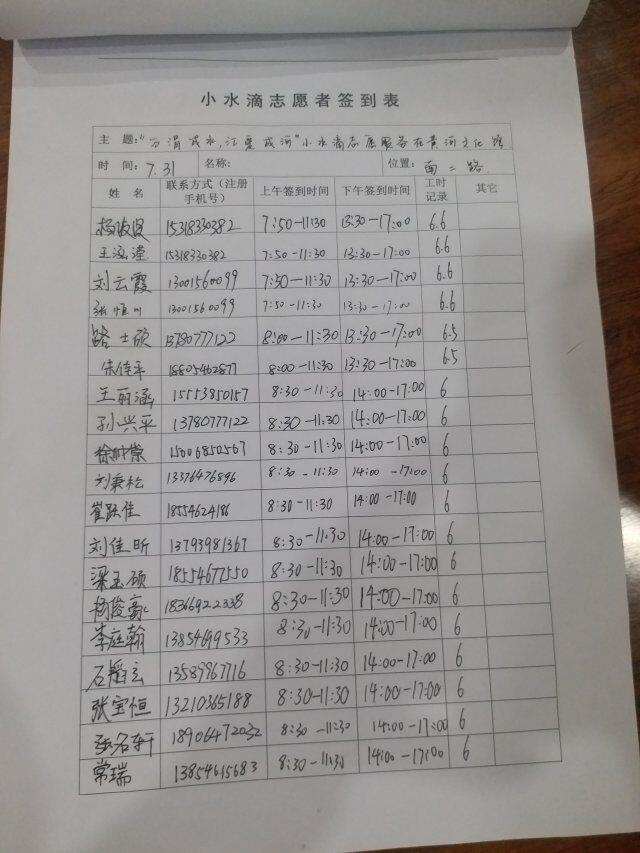 小水滴志愿者签到表
主 题:"万涓成水,汇聚成河"小水滴志愿服务在黄河文化馆
时 间: 7.31 名称: 位置: 南二路
姓 名 联系方式(注册手机号) 上午签到时间 下午签到时间 工时记录 其它
15318330382 7:50-11:30 13:30-17:00 6.6
15318330382 7:50-11:30 13:30-17:00 6.6
刘云霞 13001560099 7:50-11:30 13:30-17:00 6.6
张恒川 13001560099 7:50-11:30 13:30-17:00 6.6
路士硕 13780777122 8:00-11:30 13:30-17:00 6.5
朱佳平 18805462877 8:00-11:30 13:30-17:00 6.5
王丽涵 15553850157 8:30-11:30 14:00-17:00 6
孙兴平 13780777122 8:30-11:30 14:00-17:00 6
15006850567 8:30-11:30 14:00-17:00 6
刘秉松 13376476896 8:30-11:30 14:00-17:00 6
崔跃佳 18554624186 8:30-11:30 14:00-17:00 6
刘佳昕 13793981367 8:30-11:30 14:00-17:00 6
梁玉硕 18554677550 8:30-11:30 14:00-17:00 6
杨俊豪 18366922338 8:30-11:30 14:00-17:00 6
李庭翰 13854699533 8:30-11:30 14:00-17:00 6
石韬玄 13589967716 8:30-11:30 14:00-17:00 6
张宝恒 13210365188 8:30-11:30 14:00-17:00 6
张名轩 18906472032 8:30-11:30 14:00-17:00 6
常瑞 13854615683 8:30-11:30 14:00-17:00 6